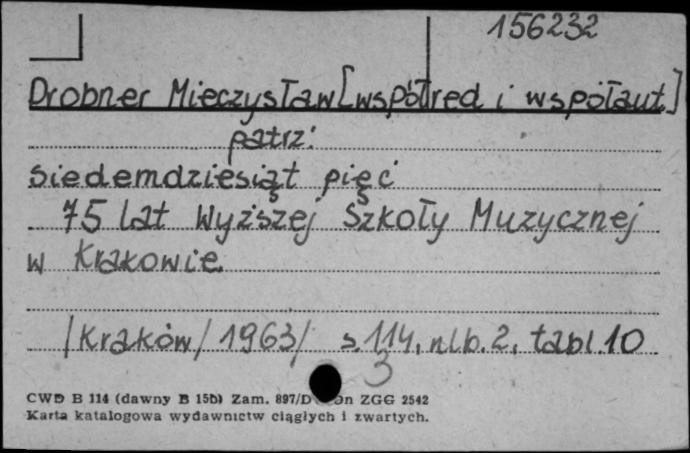 156232
Drobner Mieczysław [współred i współaut]
patrz:
siedemdziesiąt pięć
75 lat Wyższej Szkoły Muzycznej
w Krakowie.
/Kraków/ 1963/ s. 114, nlb. 2, tabl. 10
3
CWD B 114 (dawny B 15b) Zam. 897/D ZGG 2542
Karta katalogowa wydawnictw ciągłych i zwartych.